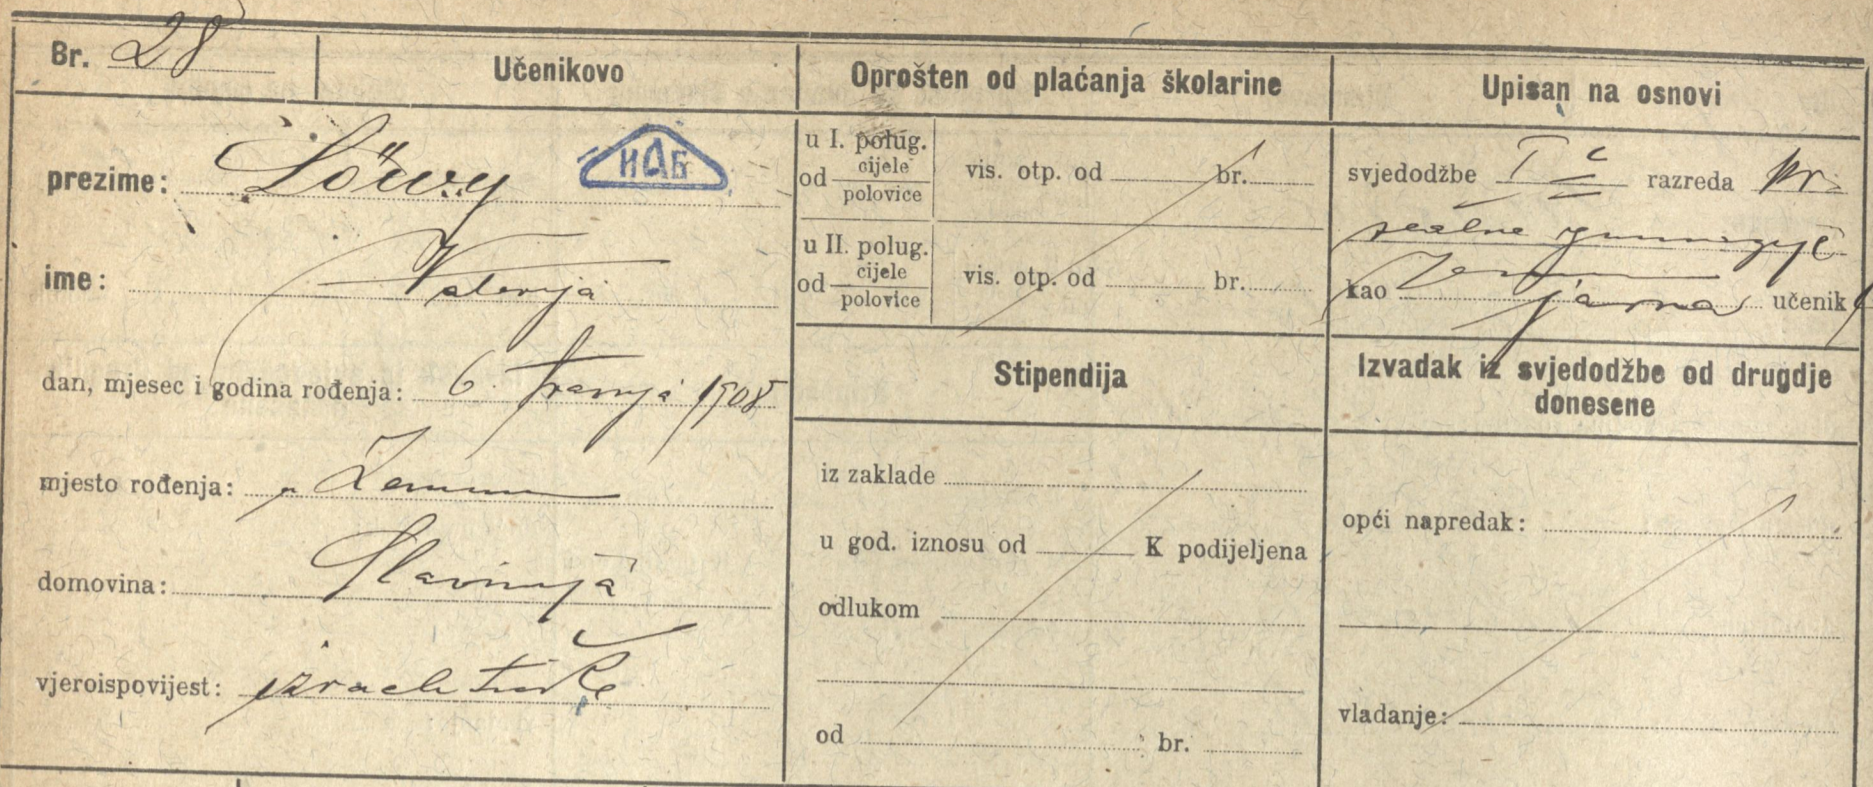 Br. 28
Učenikovo
prezime: Löwy
ИАБ
ime: Valerija
dan, mjesec i godina rođenja: 6. travnja 1908
mjesto rođenja: Zemun
domovina: Slavonija
vjeroispovijest: izraelitske
Oprošten od plaćanja školarine
u I. polug.
od cijele
polovice
vis. otp. od br.
u II. polug.
od cijele
polovice
vis. otp. od br.
Stipendija
iz zaklade
u god. iznosu od K podijeljena
odlukom
od br.
Upisan na osnovi
svjedodžbe I c razreda kr.
realne gimnazije
kao javna učenik
Izvadak iz svjedodžbe od drugdje
donesene
opći napredak:
vladanje: